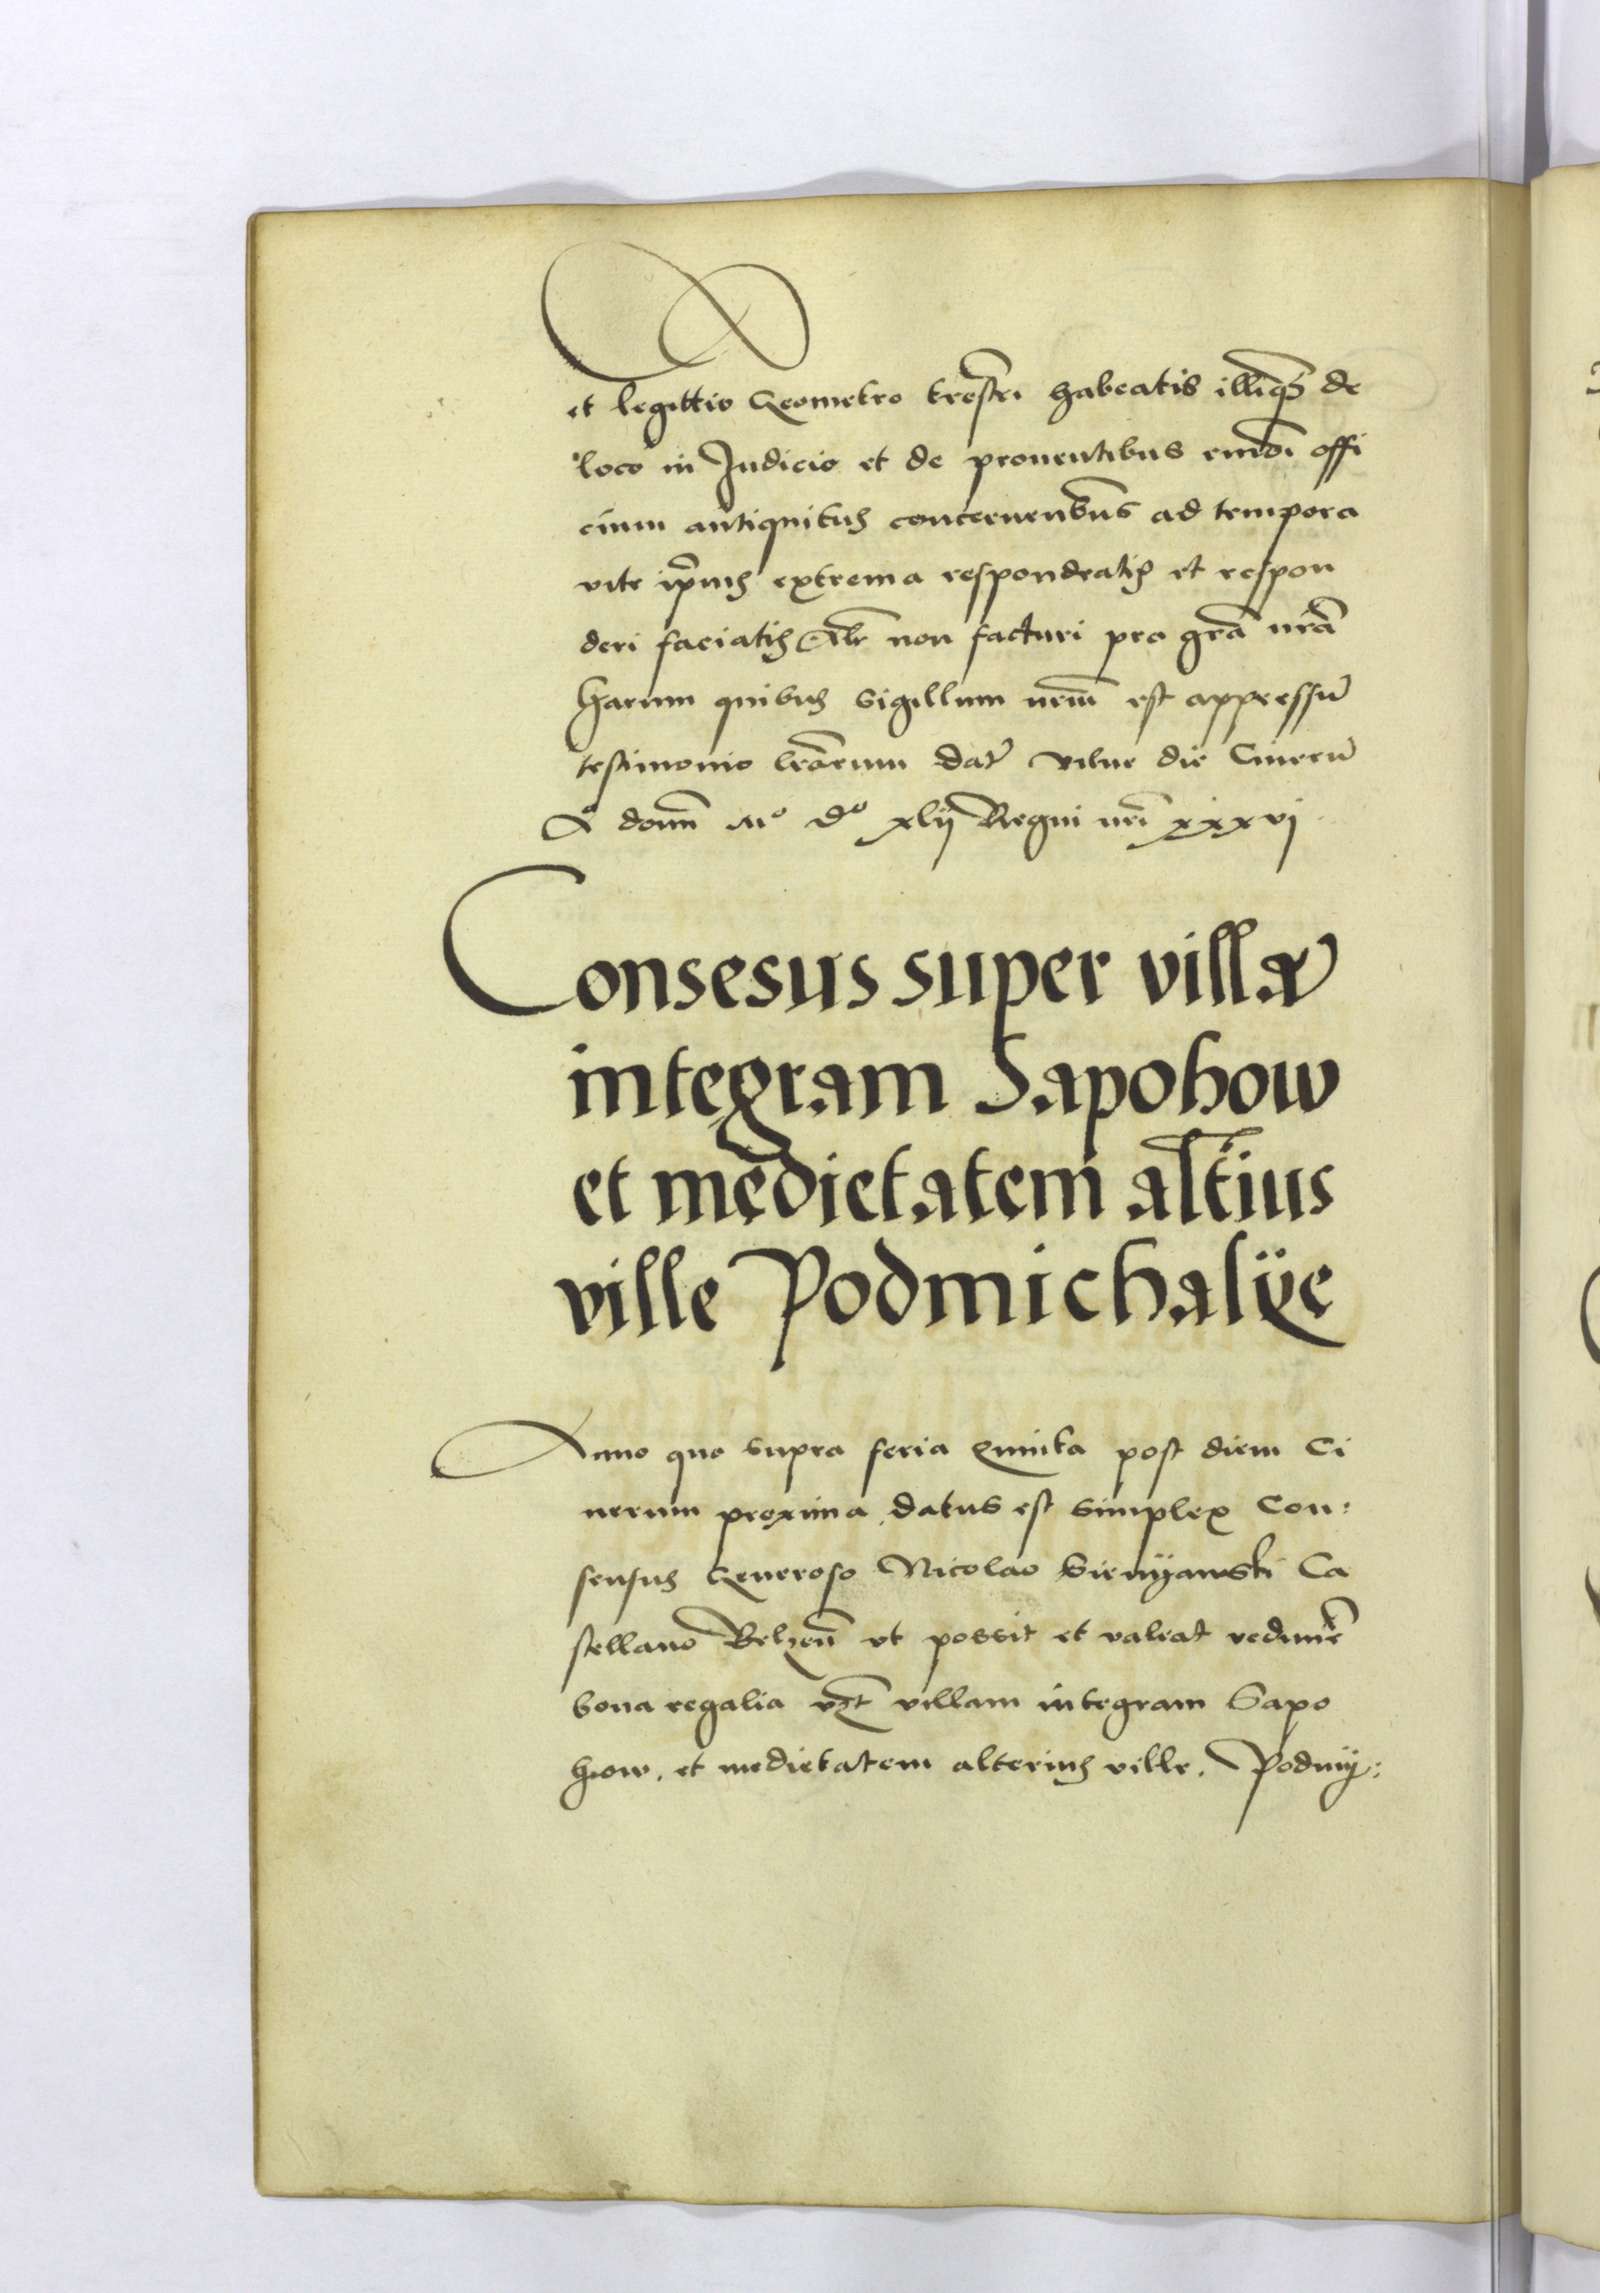 et legittio Geometro trestri habeatis illiq de
loco in Judicio et de proventibus eundi offi
cium antiquitus concernentibus ad tempora
vite ipius extrema respondeatis et respon
deri faciatis Alr non facturi pro gra nra
Harum quibus sigillum nrum est appressu
testimonio lrarum dat Vilne die Cineru
Ao domi Mo Do xlij Regni nri xxxvj
Consesus super villa
integram Sapohow
et medietatem altius
ville Podmichalÿe
Anno quo supra feria Quinta post diem Ci
nerum proxima datus est simplex Con:
sensus Generoso Nicolao Sienÿawski Ca
stellano Belzen ut possit et valeat redimere
bona regalia vzt villam integram Sapo
how. et medietatem alterius ville. Podmÿ: